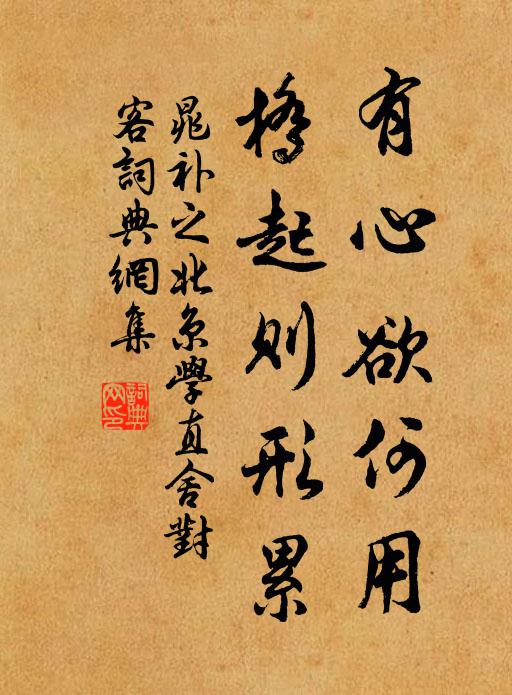 有心欲何用
橋起則形累
晁补之北京學直舍對
客詞典網集
詞典
网印